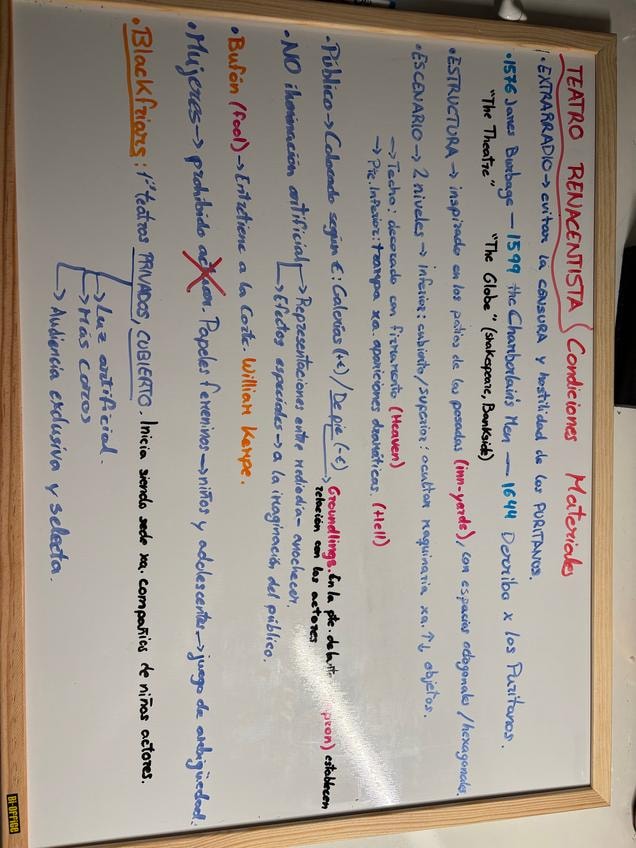 TEATRO RENACENTISTA / Condiciones Materiales
• EXTRARRADIO → evitan la CENSURA y hostilidad de los PURITANOS.
• 1576 James Burbage — 1599 the Chamberlain's Men — 1644 Derribo x los Puritanos.
"The Theatre" "The Globe" (Shakespeare, Bankside)
• ESTRUCTURA → inspirado en los patios de las posadas (inn-yards), con espacios octogonales / hexagonales
• ESCENARIO → 2 niveles → inferior: cubierto / superior: ocultar maquinaria xa. ↑↓ objetos.
→ Techo: decorado con firmamento (Heaven)
→ Pte. Inferior: trampa xa. apariciones dramáticas. (Hell)
• Público → Colocado según €: Galerías (+€) / De pie (-€) → Groundlings. En la pte. delantera pron) establecen
relación con los actores
• NO iluminación artificial → Representaciones entre mediodía - anochecer.
→ Efectos especiales → a la imaginación del público.
• Bufón (fool) → Entretiene a la Corte. William Kempe.
• Mujeres → prohibido actuar. Papeles femeninos → niños y adolescentes → juego de ambigüedad.
• Blackfriars: 1os teatros PRIVADOS, CUBIERTO. Inicia siendo sede xa. compañías de niños actores.
→ Luz artificial.
→ Más caros
→ Audiencia exclusiva y selecta.
BI-OFFICE